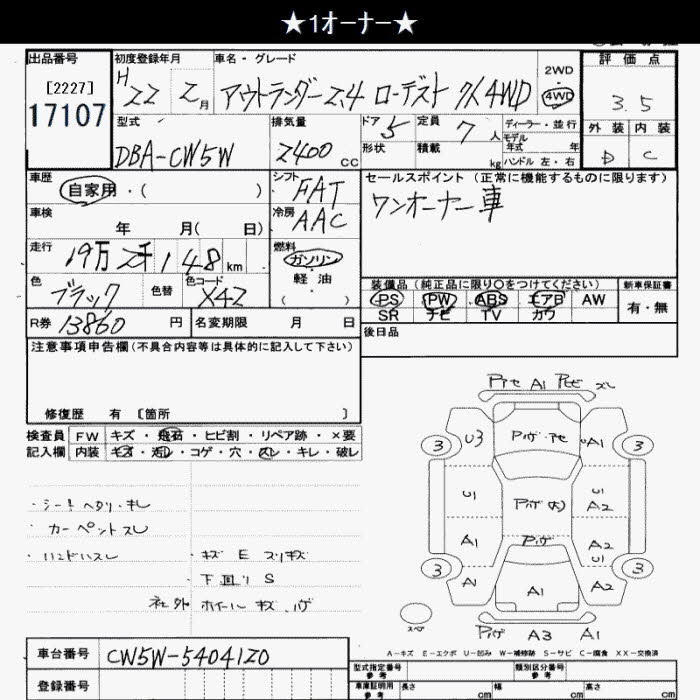 ★1オーナー★
出品番号
[2227]
17107
初度登録年月
H22 2月
車名・グレード
アウトランダー2.4 ローデスト 4WD
2WD
4WD
評価点
3.5
外装 内装
D C
型式
DBA-CW5W
排気量
2400 cc
ドア 5
形状
定員 7人
積載 kg
ディーラー・並行
モデル年式 年
ハンドル 左・右
車歴
自家用・( )
シフト FAT
セールスポイント(正常に機能するものに限ります)
ワンオーナー車
車検 年 月( 日)
冷房 AAC
走行 19万2千148km
燃料
ガソリン
軽油
( )
色 ブラック
色替
色コード X42
装備品(純正品に限り〇をつけてください)
新車保証書
PS PW ABS エアB AW
有・無
SR ナビ TV カワ
R券 13860円
名変期限 月 日
後日品
注意事項申告欄(不具合内容等は具体的に記入して下さい)
修復歴 有 〔箇所 〕
検査員記入欄
FW キズ・飛石・ヒビ割・リペア跡・×要
内装 キズ・汚レ・コゲ・穴・スレ・キレ・破レ
・シートヘタリ・キレ
・カーペットスレ
・ハンドルスレ
・キズ E スリキズ
下回り S
社外 ホイールキズ、ハゲ
A1
3 U3 A1 3
U1 U1 A2
A1 A2
3 A1 A1 A2 3
スペア
A3 A1
A-キズ E-エクボ U-凹み W-補修跡 S-サビ C-腐食 XX-交換済
車台番号 CW5W-5404120
登録番号
型式指定番号 参考
類別区分番号 参考
車庫証明用 参考
長さ cm 幅 cm 高さ cm